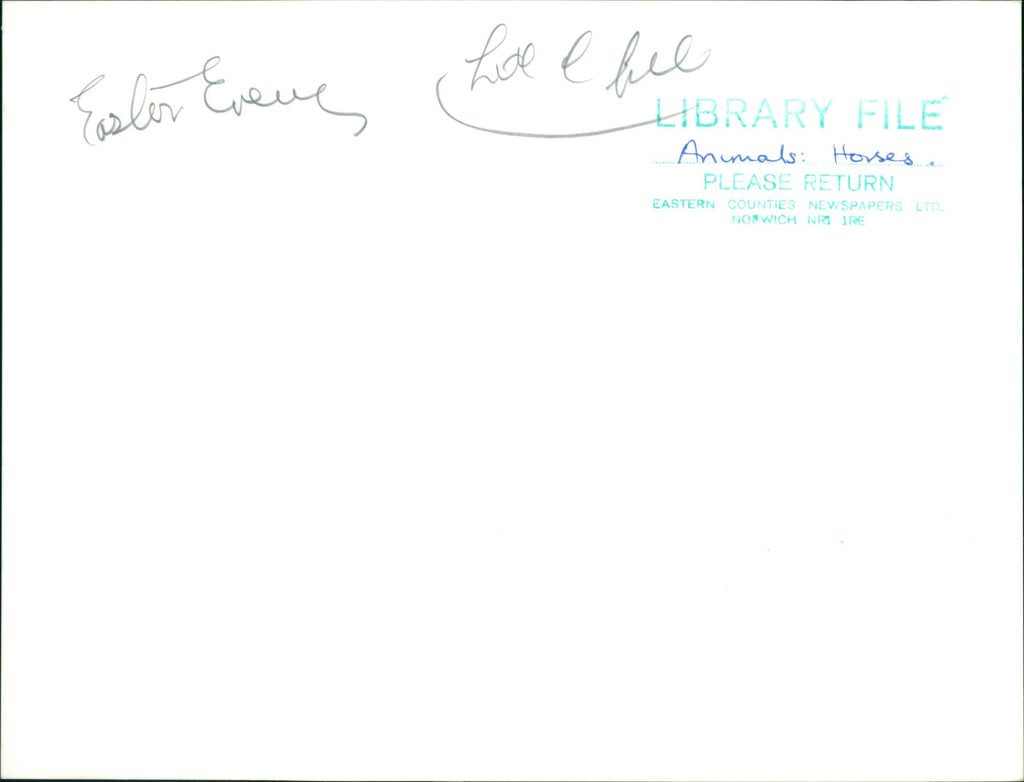 Easter Evening
LIBRARY FILE
Animals: Horses.
PLEASE RETURN
EASTERN COUNTIES NEWSPAPERS LTD.
NORWICH NR1 1RE